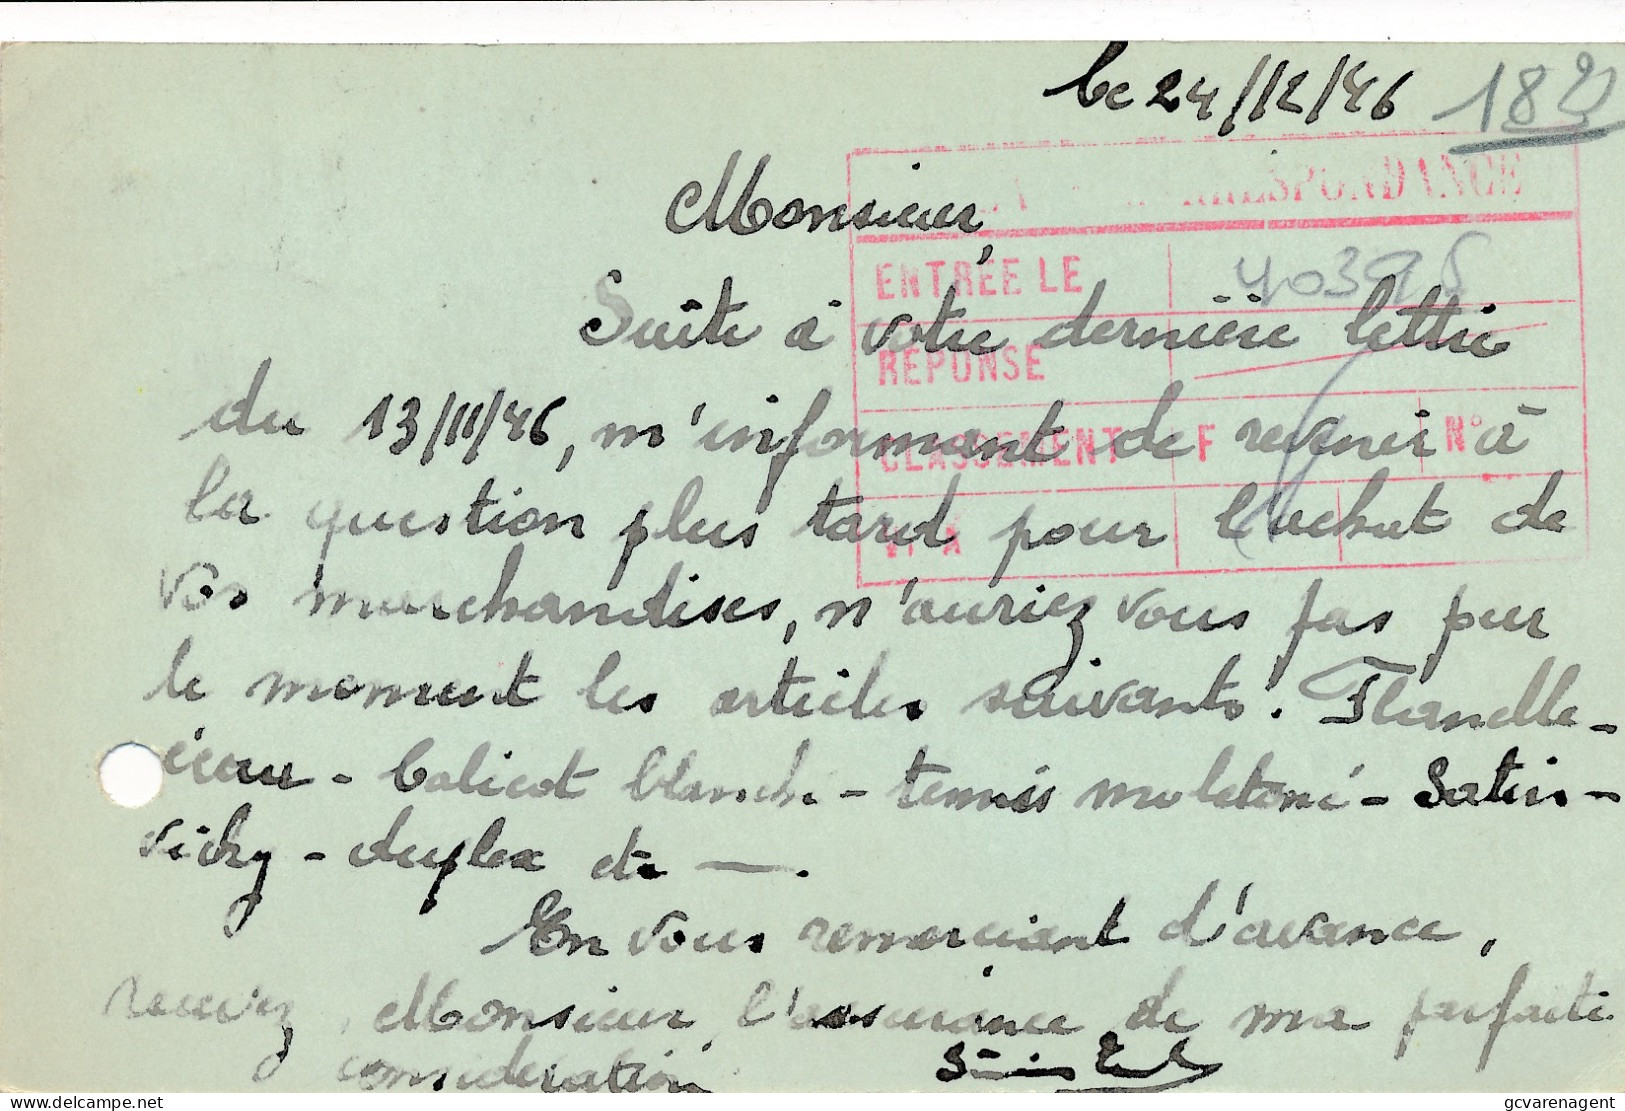 Le 24/12/46 182
Monsieur,
CORRESPONDANCE
ENTRÉE LE 40395
Suite à votre dernière lettre
RÉPONSE
du 13/11/46, m'informant de revenir à
CLASSEMENT F N°
la question plus tard pour l'achat de
vos marchandises, n'auriez vous pas pur
le moment les articles suivants: Flanelle-
écrue - Calicot blanche - tennis moletoné - Satin -
vichy - duplex etc —.
En vous remerciant d'avance,
recevez, Monsieur, l'assurance de ma parfaite
considération
gcvarenagent